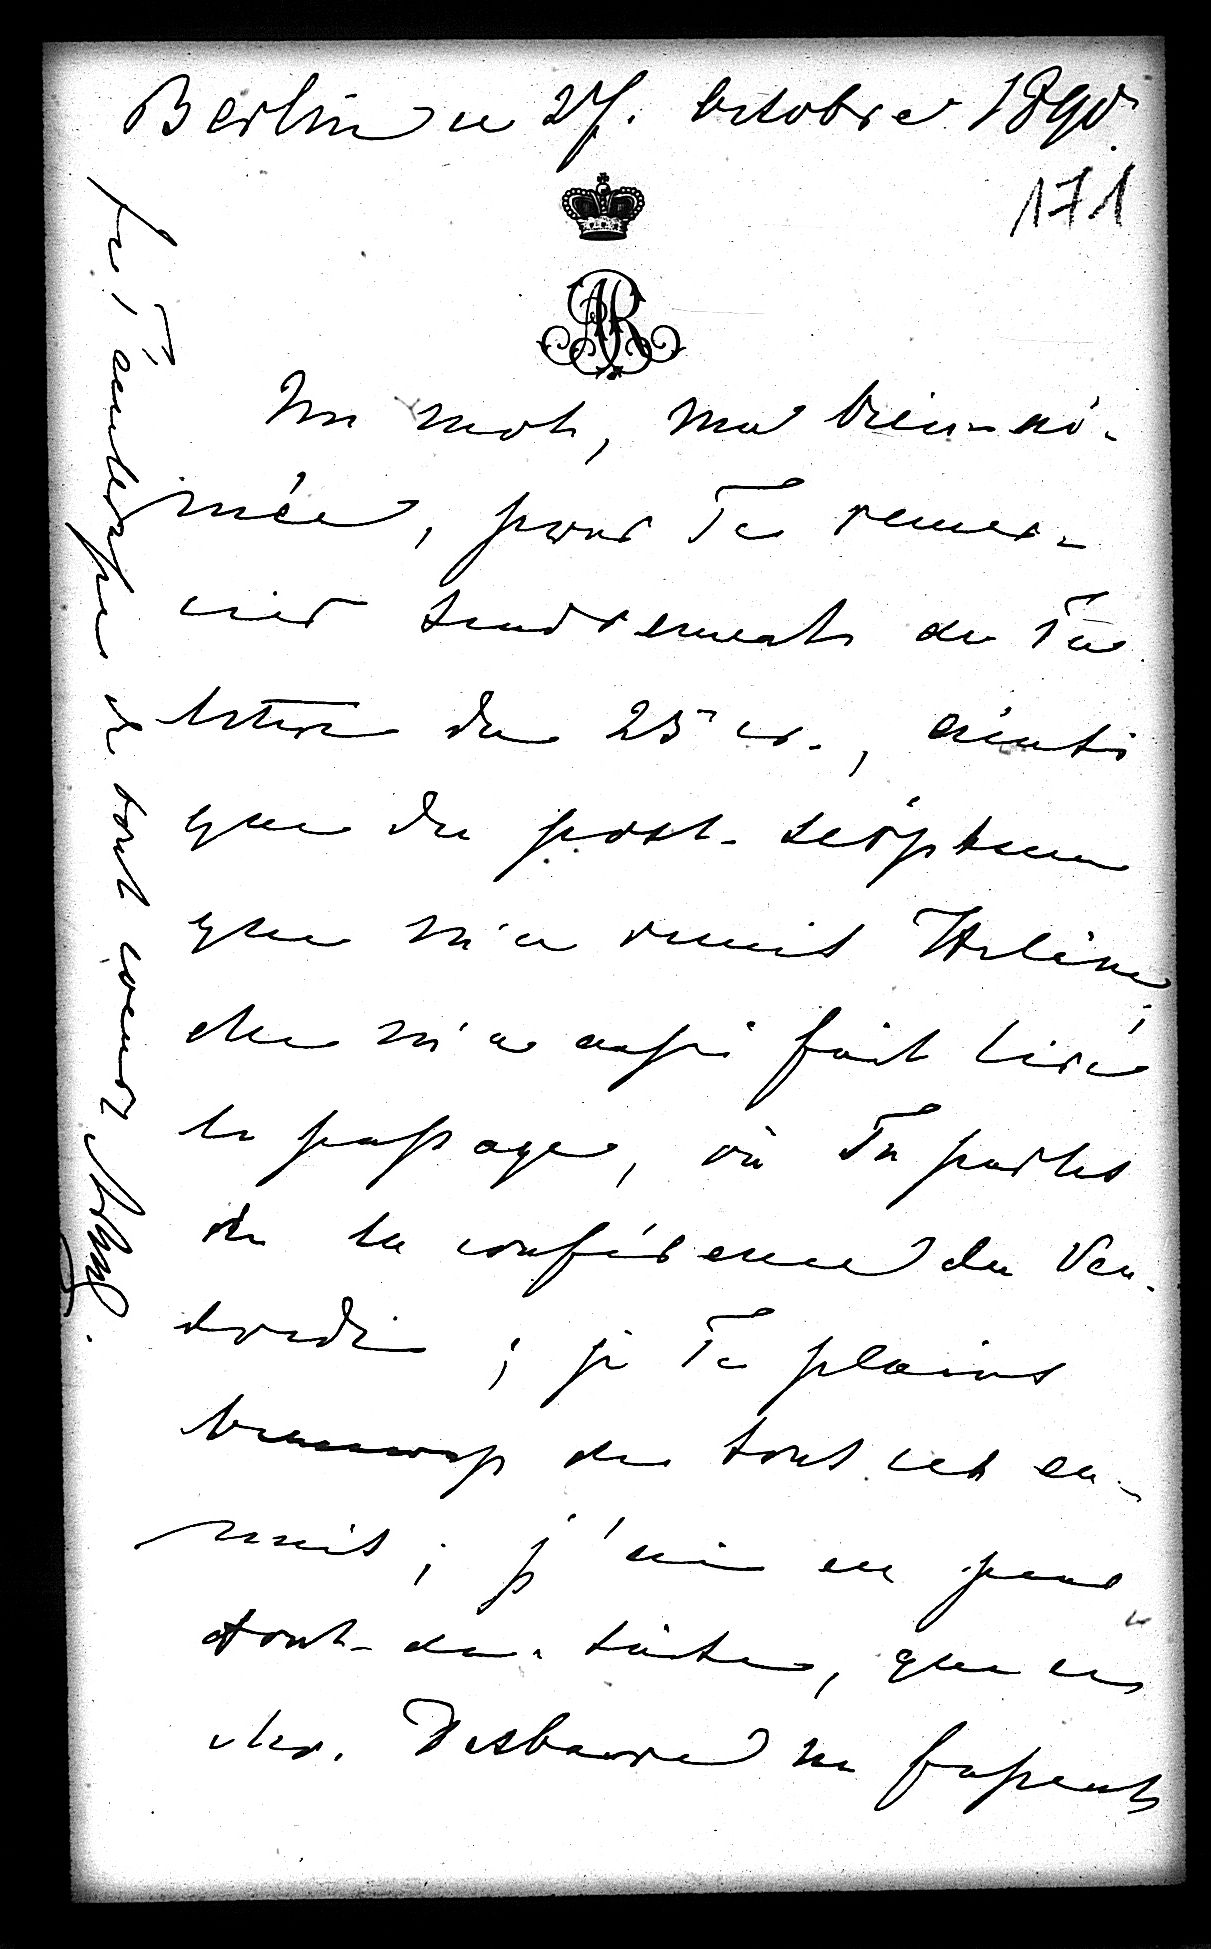 Berlin ce 27. Octobre 1890
171
AR
Un mot, ma bien-ai-
mée, pour Te remer-
cier tendrement de Ta
lettre du 25 cr., ainsi
que du post-scriptum
que m'a remis Hélène;
elle m'a aussi fait lire
le passage, où Tu parles
de la conférence du Ven-
dredi; je Te plains
beaucoup de tout cet en-
nuis; j'ai eu peur
tout-de-suite, que ces
Desbarre ne fassent
Je T'embrasse de tout coeur